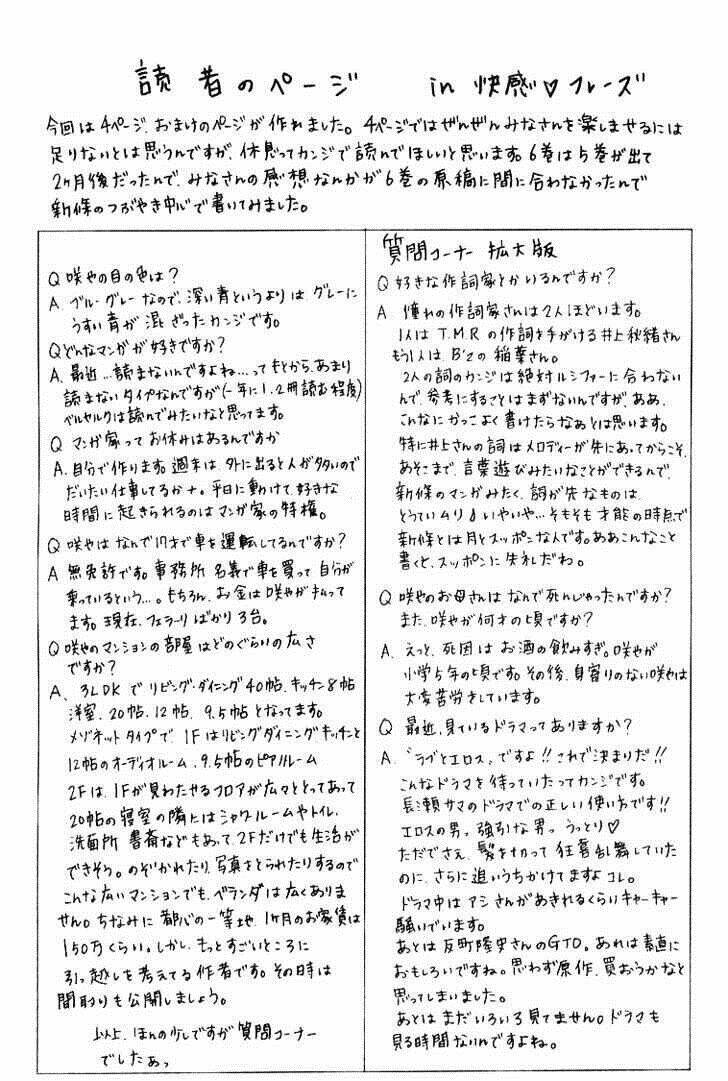 読者のページ in 快感♡フレーズ
今回は4ページ、おまけのページが作れました。4ページではぜんぜんみなさんを楽しませるには
足りないとは思うんですが、休憩ってカンジで読んでほしいと思います。6巻は5巻が出て
2ヶ月後だったんで、みなさんの感想なんかが6巻の原稿に間に合わなかったんで
新條のつぶやき中心で書いてみました。
Q 咲也の目の色は?
A. ブルーグレーなので、深い青というよりは グレーに
うすい青が混ざったカンジです。
Q どんなマンガが好きですか?
A. 最近…読まないんですよね…ってもとから、あまり
読まないタイプなんですが(一年に1、2冊読む程度)
ベルセルクは読んでみたいなと思ってます。
Q マンガ家ってお休みはあるんですか
A. 自分で作ります。週末は、外に出ると人が多いので
だいたい仕事してるかナ。平日に動けて、好きな
時間に起きられるのはマンガ家の特権。
Q 咲也はなんで17才で車を運転してるんですか?
A 無免許です。事務所名義で車を買って自分が
乗っているという…。もちろん、お金は咲也が払って
ます。現在、フェラーリばかり3台。
Q 咲也のマンションの部屋はどのぐらいの広さ
ですか?
A、3LDKでリビング・ダイニング40帖、キッチン8帖
洋室、20帖、12帖、9.5帖となってます。
メゾネットタイプで、1Fはリビングダイニングキッチンと
12帖のオーディオルーム、9.5帖のピアノルーム
2Fは、1Fが見わたせるフロアが広々ととってあって
20帖の寝室の隣にはシャワールームやトイレ、
洗面所 書斎などもあって、2Fだけでも生活が
できそう。のぞかれたり、写真をとられたりするので
こんな広いマンションでも、ベランダは広くありま
せん。ちなみに都心の一等地、1ヶ月のお家賃は
150万くらい。しかし、もっとすごいところに
引っ越しを考えてる作者です。その時は
間取りも公開しましょう。
以上、ほんの少しですが質問コーナー
でしたぁっ
質問コーナー 拡大版
Q 好きな作詞家とかいるんですか?
A 憧れの作詞家さんは2人ほどいます。
1人はT.M.Rの作詞を手がける井上秋緒さん
もう1人はB'zの稲葉さん。
2人の詞のカンジは絶対ルシファーに合わない
んで、参考にすることはまずないんですが、ああ、
こんなにかっこよく書けたらなぁとは思います。
特に井上さんの詞はメロディーが先にあってからこそ、
あそこまで、言葉遊びみたいなことができるんで、
新條のマンガみたく、詞が先なものは、
とうていムリ♪いやいや…そもそも才能の時点で
新條とは月とスッポンなんです。ああこんなこと
書くと、スッポンに失礼だわ。
Q 咲也のお母さんはなんで死んじゃったんですか?
また、咲也が何才の頃ですか?
A、えっと、死因はお酒の飲みすぎ。咲也が
小学5年の頃です。その後、身寄りのない咲也は
大変苦労をしています。
Q 最近、見ているドラマってありますか?
A. “ラブとエロス”ですよ!!これで決まりだ!!
こんなドラマを待っていたってカンジです。
長瀬サマのドラマでの正しい使い方です!!
エロスの男っ 強引な男っ うっとり♡
ただでさえ、髪を切って狂喜乱舞していた
のに、さらに追いうちかけてますよコレ。
ドラマ中はアシさんがあきれるくらいキャーキャー
騒いでいます。
あとは反町隆史さんのGTO。あれは素直に
おもしろいですね。思わず原作、買おうかなと
思ってしまいました。
あとはまだいろいろ見てません。ドラマも
見る時間ないんですよね。